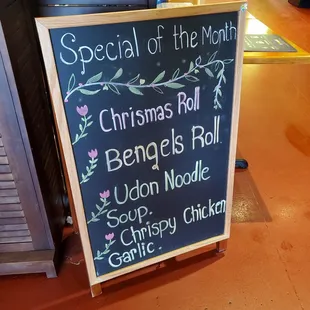 Special of the Month
Chrismas Roll
Bengels Roll
Udon Noodle
Soup.
Chrispy Chicken
Garlic.